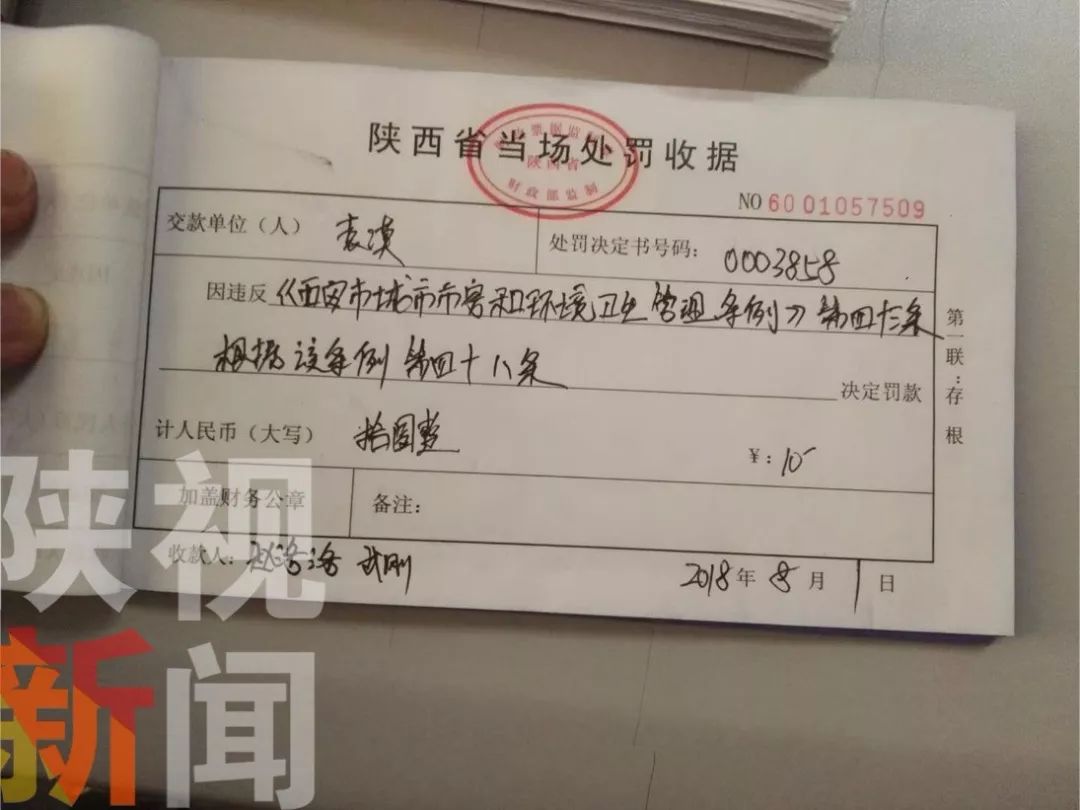 陕西省当场处罚收据
陕西省
财政部监制
NO 6001057509
交款单位（人） 袁溟
处罚决定书号码： 0003858
因违反《西安市城市市容和环境卫生管理条例》第四十三条
根据该条例第四十八条
决定罚款
计人民币（大写） 拾圆整
¥：10
加盖财务公章
备注：
收款人： 武刚
2018年8月1日
第一联：存根
陕视
新闻